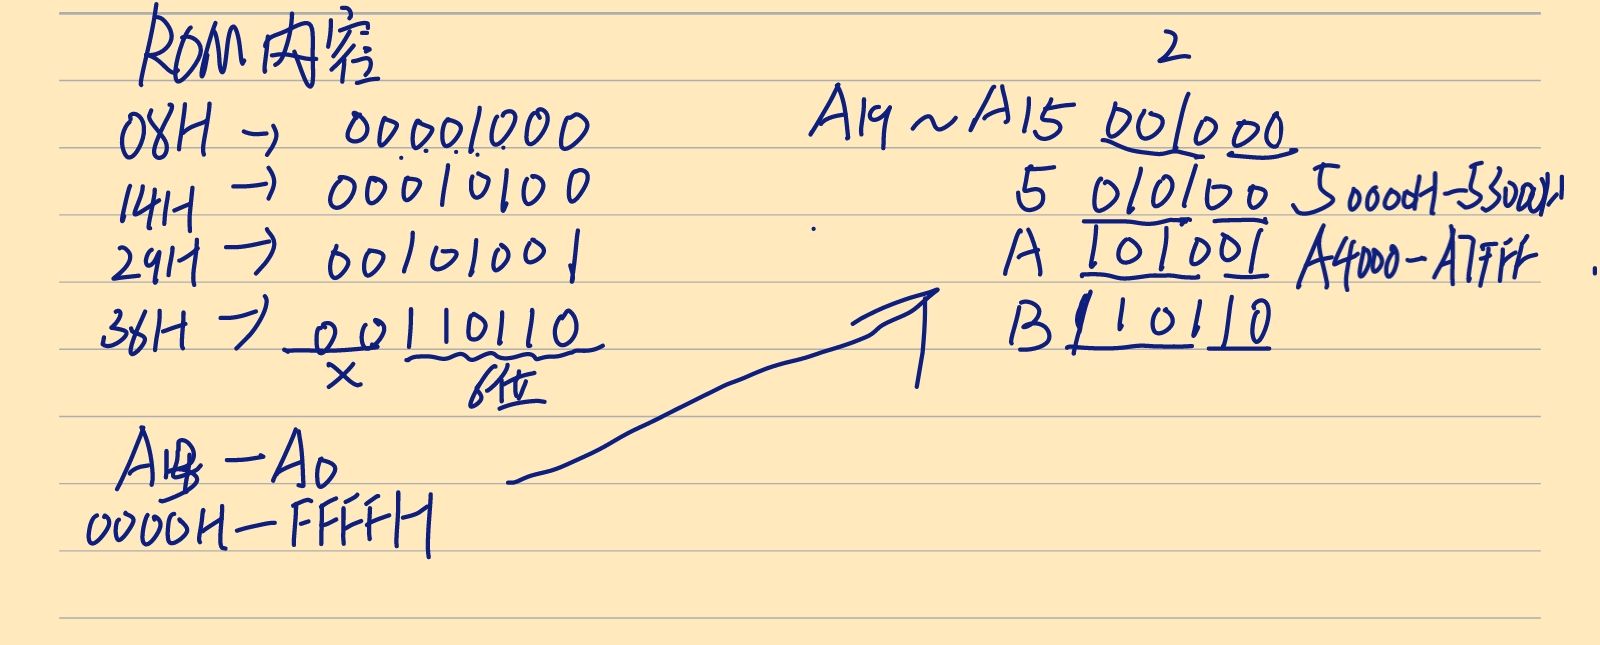 ROM 内容
08H → 00001000
14H → 00010100
29H → 00101001
38H → 00110110
X 6位
A13 — A0
0000H — FFFFH
2
A19 ~ A15 001000
5 010100 50000H-53000H
A 101001 A4000-A7FFF
B 110110